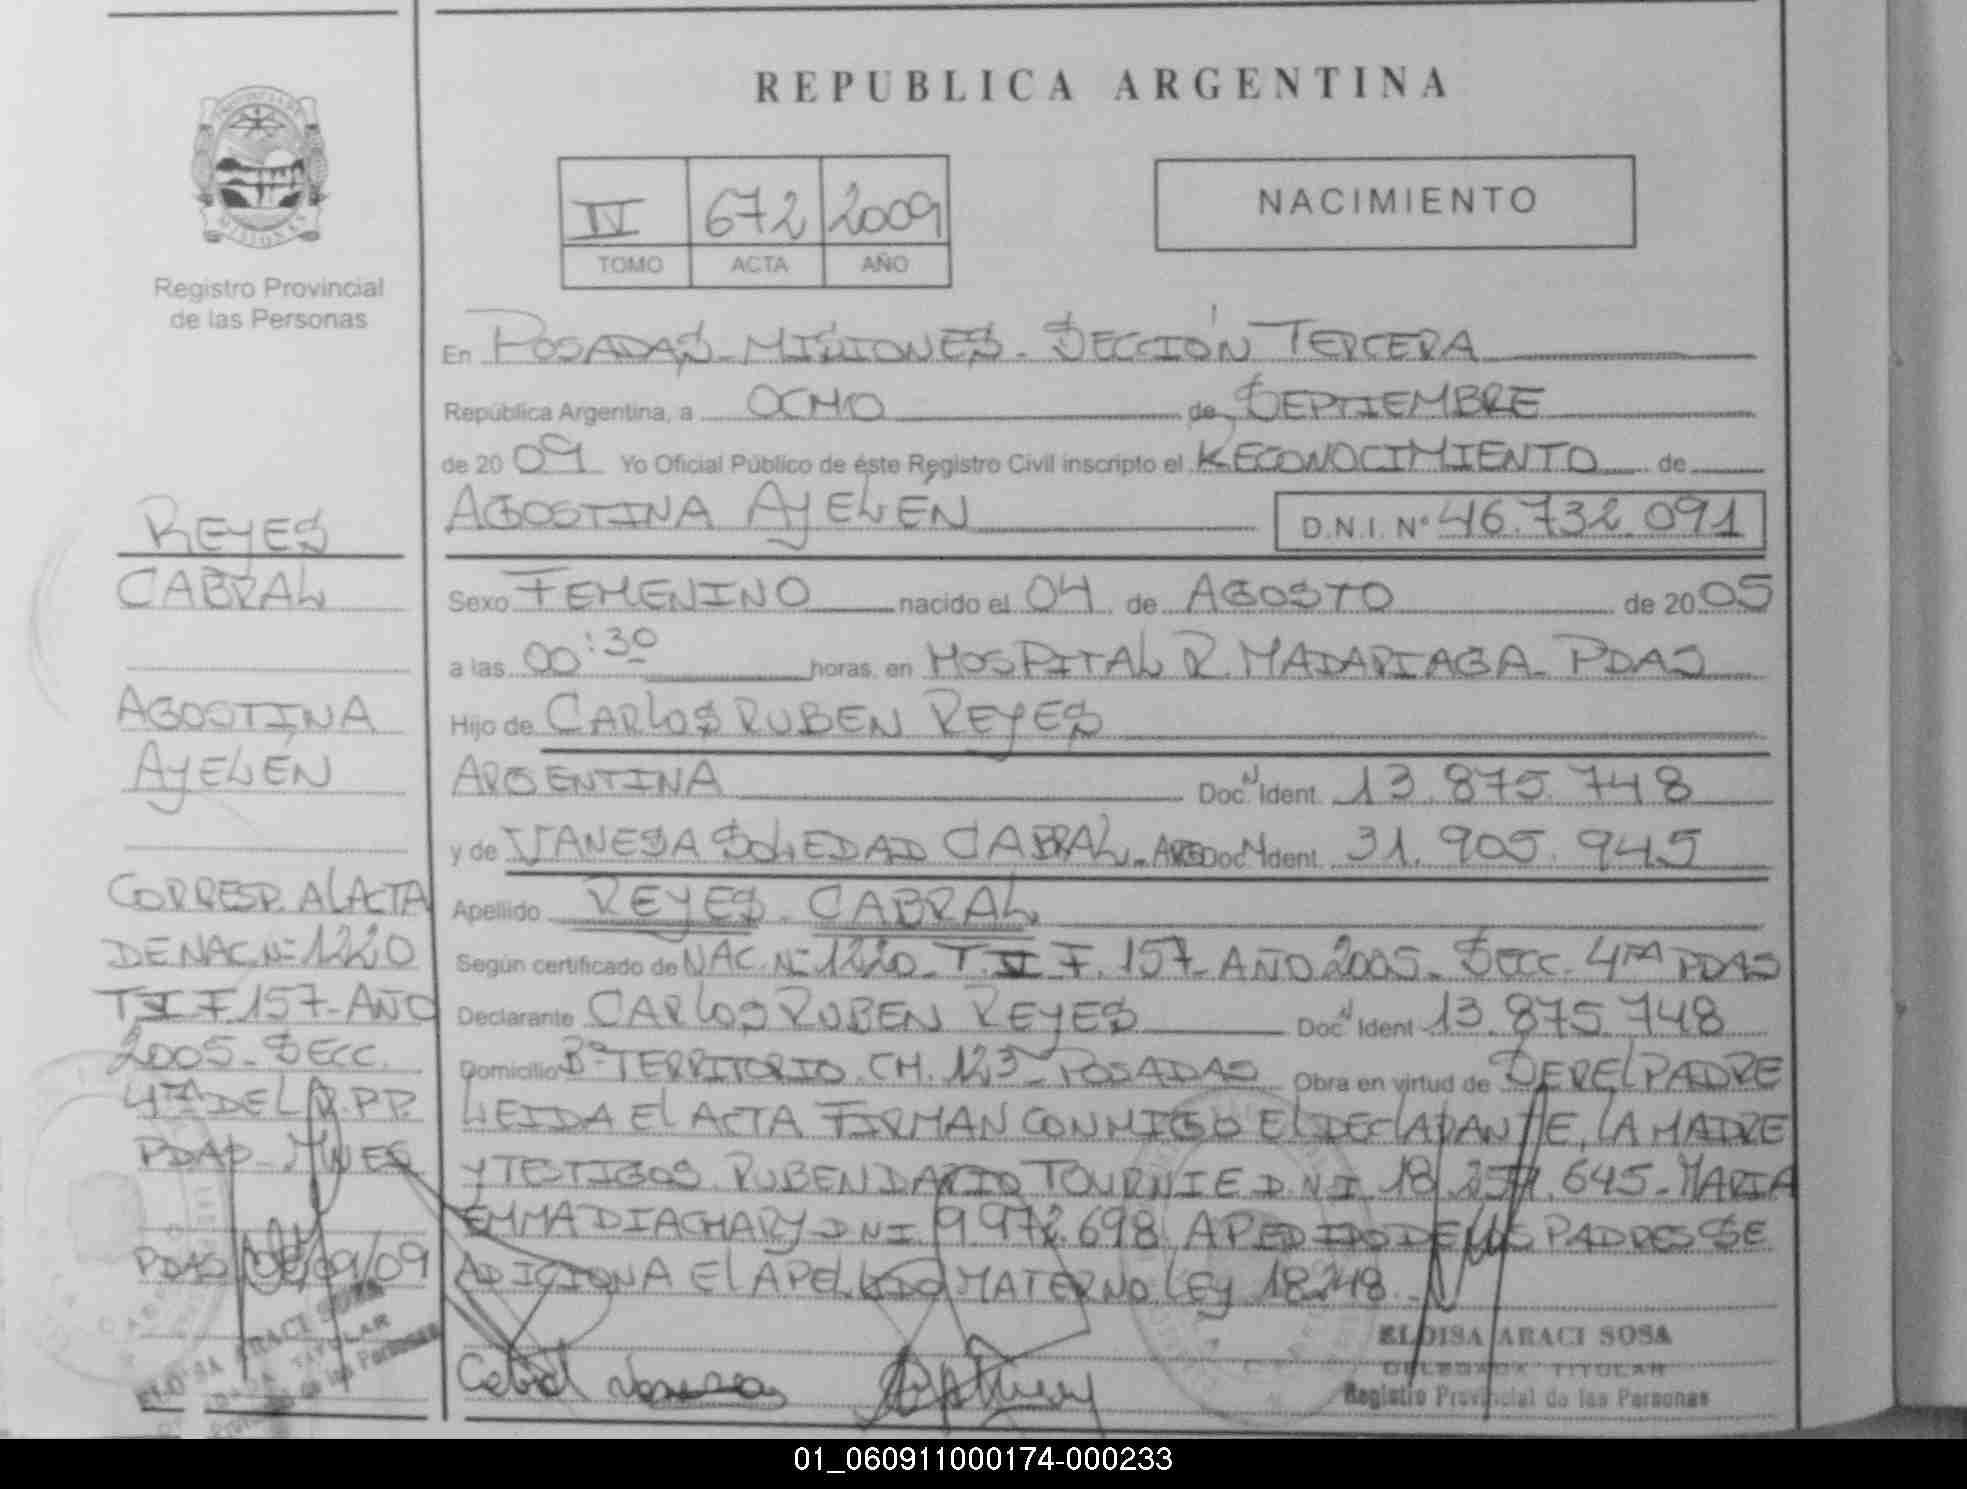 REPUBLICA ARGENTINA
IV 672 2009
TOMO ACTA AÑO
NACIMIENTO
Registro Provincial
de las Personas
En POSADAS - MISIONES - SECCIÓN TERCERA
República Argentina, a OCHO de SEPTIEMBRE
de 2009 Yo Oficial Público de éste Registro Civil inscripto el RECONOCIMIENTO de
AGOSTINA AYELEN D.N.I. N° 46.732.091
Sexo FEMENINO nacido el 04 de AGOSTO de 2005
a las 00:30 horas, en HOSPITAL R. MADARIAGA - PDAS
Hijo de CARLOS RUBEN REYES
ARGENTINA Doc. N Ident. 13.875.748
y de VANESA SOLEDAD CABRAL - ARG Doc. N Ident. 31.905.945
Apellido REYES - CABRAL
Según certificado de NAC. Nº 1220 - T. F. 157 - AÑO 2005 - SECC. 4TA PDAS
Declarante CARLOS RUBEN REYES Doc. N Ident. 13.875.748
Domicilio Bº TERRITORIO. CH. 123 - POSADAS Obra en virtud de SER EL PADRE
LEIDA EL ACTA FIRMAN CONMIGO EL DECLARANTE, LA MADRE
Y TESTIGOS. RUBEN DARIO TOURNIE D.N.I. 18.257.645 - MARIA
EMMA DIACHARY DNI 9.972.698. A PEDIDO DE LOS PADRES SE
ADICIONA EL APELLIDO MATERNO LEY 18248.
ELOISA ARACI SOSA
DELEGADA TITULAR
Registro Provincial de las Personas
REYES
CABRAL
AGOSTINA
AYELÉN
CORRESP. AL ACTA
DE NAC. Nº 1220
T F. 157 - AÑO
2005 - SECC.
4TA DEL R.P.P.
PDAS - MNES
PDAS 08/09/09
ELOISA ARACI SOSA
TITULAR
de las Personas
01_060911000174-000233